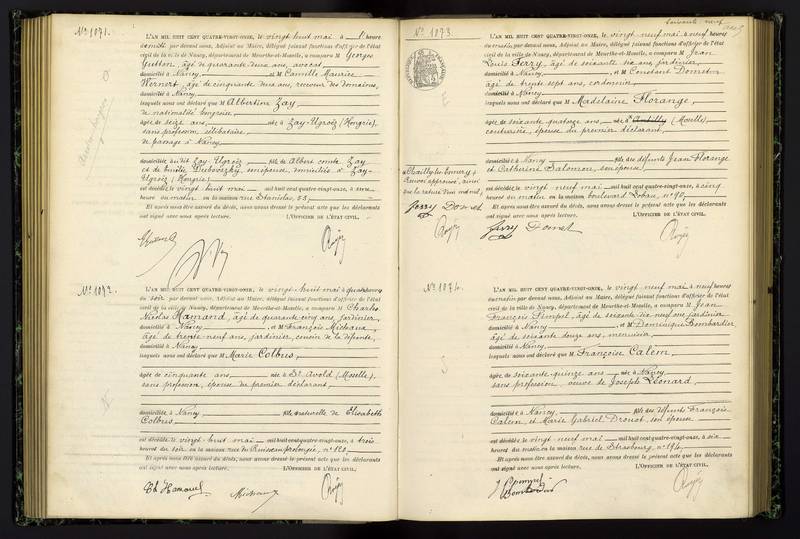 N° 1071.
L'AN MIL HUIT CENT QUATRE-VINGT-ONZE, le vingt huit mai à l'heure
de midi par devant nous, Adjoint au Maire, délégué faisant fonctions d'officier de l'état
civil de la ville de Nancy, département de Meurthe-et-Moselle, a comparu M Georges
Gutton, âgé de quarante deux ans, avocat
domicilié à Nancy, et M Camille Maurice
Wernert, âgé de cinquante deux ans, receveur des domaines,
domicilié à Nancy
lesquels nous ont déclaré que M Albertine Zay
de nationalité hongroise
âgée de seize ans née à Zay-Ugroëz (Hongrie),
sans profession, célibataire
de passage à Nancy
domiciliée au dit Zay-Ugroëz fille de Albert comte Zay
et de Dubovszky, son épouse, domiciliés à Zay-
Ugroëz (Hongrie)
est décédée le vingt huit mai mil huit cent quatre-vingt-onze, à
heure du matin en la maison rue Stanislas, 55,
Et après nous être assuré du décès, nous avons dressé le présent acte que les déclarants
ont signé avec nous après lecture. L'OFFICIER DE L'ÉTAT CIVIL.
N° 1072.
L'AN MIL HUIT CENT QUATRE-VINGT-ONZE, le vingt-huit mai à quatre heures
du soir par devant nous, Adjoint au Maire, délégué faisant fonctions d'officier de l'état
civil de la ville de Nancy, département de Meurthe-et-Moselle, a comparu M Charles
Nicolas Hamond, âgé de quarante cinq ans, jardinier,
domicilié à Nancy et M François Michaux,
âgé de trente-neuf ans, jardinier, cousin de la défunte,
domicilié à Nancy
lesquels nous ont déclaré que M Marie Colbus
âgée de cinquante ans née à St Avold (Moselle),
sans profession, épouse du premier déclarant
domiciliée à Nancy fille naturelle de Elisabeth
Colbus
est décédée le vingt-huit mai mil huit cent quatre-vingt-onze, à trois
heures du soir en la maison rue du Ruisseau prolongée, n° 120
Et après nous être assuré du décès, nous avons dressé le présent acte que les déclarants
ont signé avec nous après lecture. L'OFFICIER DE L'ÉTAT CIVIL.
Michaux
soixante neuf
N° 1073
L'AN MIL HUIT CENT QUATRE-VINGT-ONZE, le vingt-neuf mai à neuf heures
du matin par devant nous, Adjoint au Maire, délégué faisant fonctions d'officier de l'état
civil de la ville de Nancy, département de Meurthe-et-Moselle, a comparu M Jean
Louis Ferry, âgé de soixante dix ans, jardinier,
domicilié à Nancy et M Constant
âgé de trente sept ans, cordonnier
domicilié à Nancy
lesquels nous ont déclaré que M Madelaine Florange
âgée de soixante quatorze ans née à (Moselle)
couturière, épouse du premier déclarant
domiciliée à Nancy fille des défunts Jean Florange
et Catherine Salomon, son épouse
est décédée le vingt neuf mai mil huit cent quatre-vingt-onze, à cinq
heures du matin en la maison boulevard Lobau, n° 90
Et après nous être assuré du décès, nous avons dressé le présent acte que les déclarants
ont signé avec nous après lecture. L'OFFICIER DE L'ÉTAT CIVIL.
Chailly-lès-Ennery,
renvoi approuvé, ainsi
que la rature d'un mot nul,
N° 1074.
L'AN MIL HUIT CENT QUATRE-VINGT-ONZE, le vingt-neuf mai à neuf heures
du matin par devant nous, Adjoint au Maire, délégué faisant fonctions d'officier de l'état
civil de la ville de Nancy, département de Meurthe-et-Moselle, a comparu M Jean
François Pimpel, âgé de soixante dix neuf ans jardinier
domicilié à Nancy et M Dominique Bombardier
âgé de soixante douze ans, menuisier
domicilié à Nancy
lesquels nous ont déclaré que M Françoise Calem
âgée de soixante-quinze ans née à Nancy
sans profession, veuve de Joseph Léonard
domiciliée à Nancy, fille des défunts François
Calem et Marie Gabriel Drouot, son épouse
est décédée le vingt-neuf mai mil huit cent quatre-vingt-onze, à six
heures du matin en la maison rue de Strasbourg, n° 194
Et après nous être assuré du décès, nous avons dressé le présent acte que les déclarants
ont signé avec nous après lecture. L'OFFICIER DE L'ÉTAT CIVIL.
Bombardier